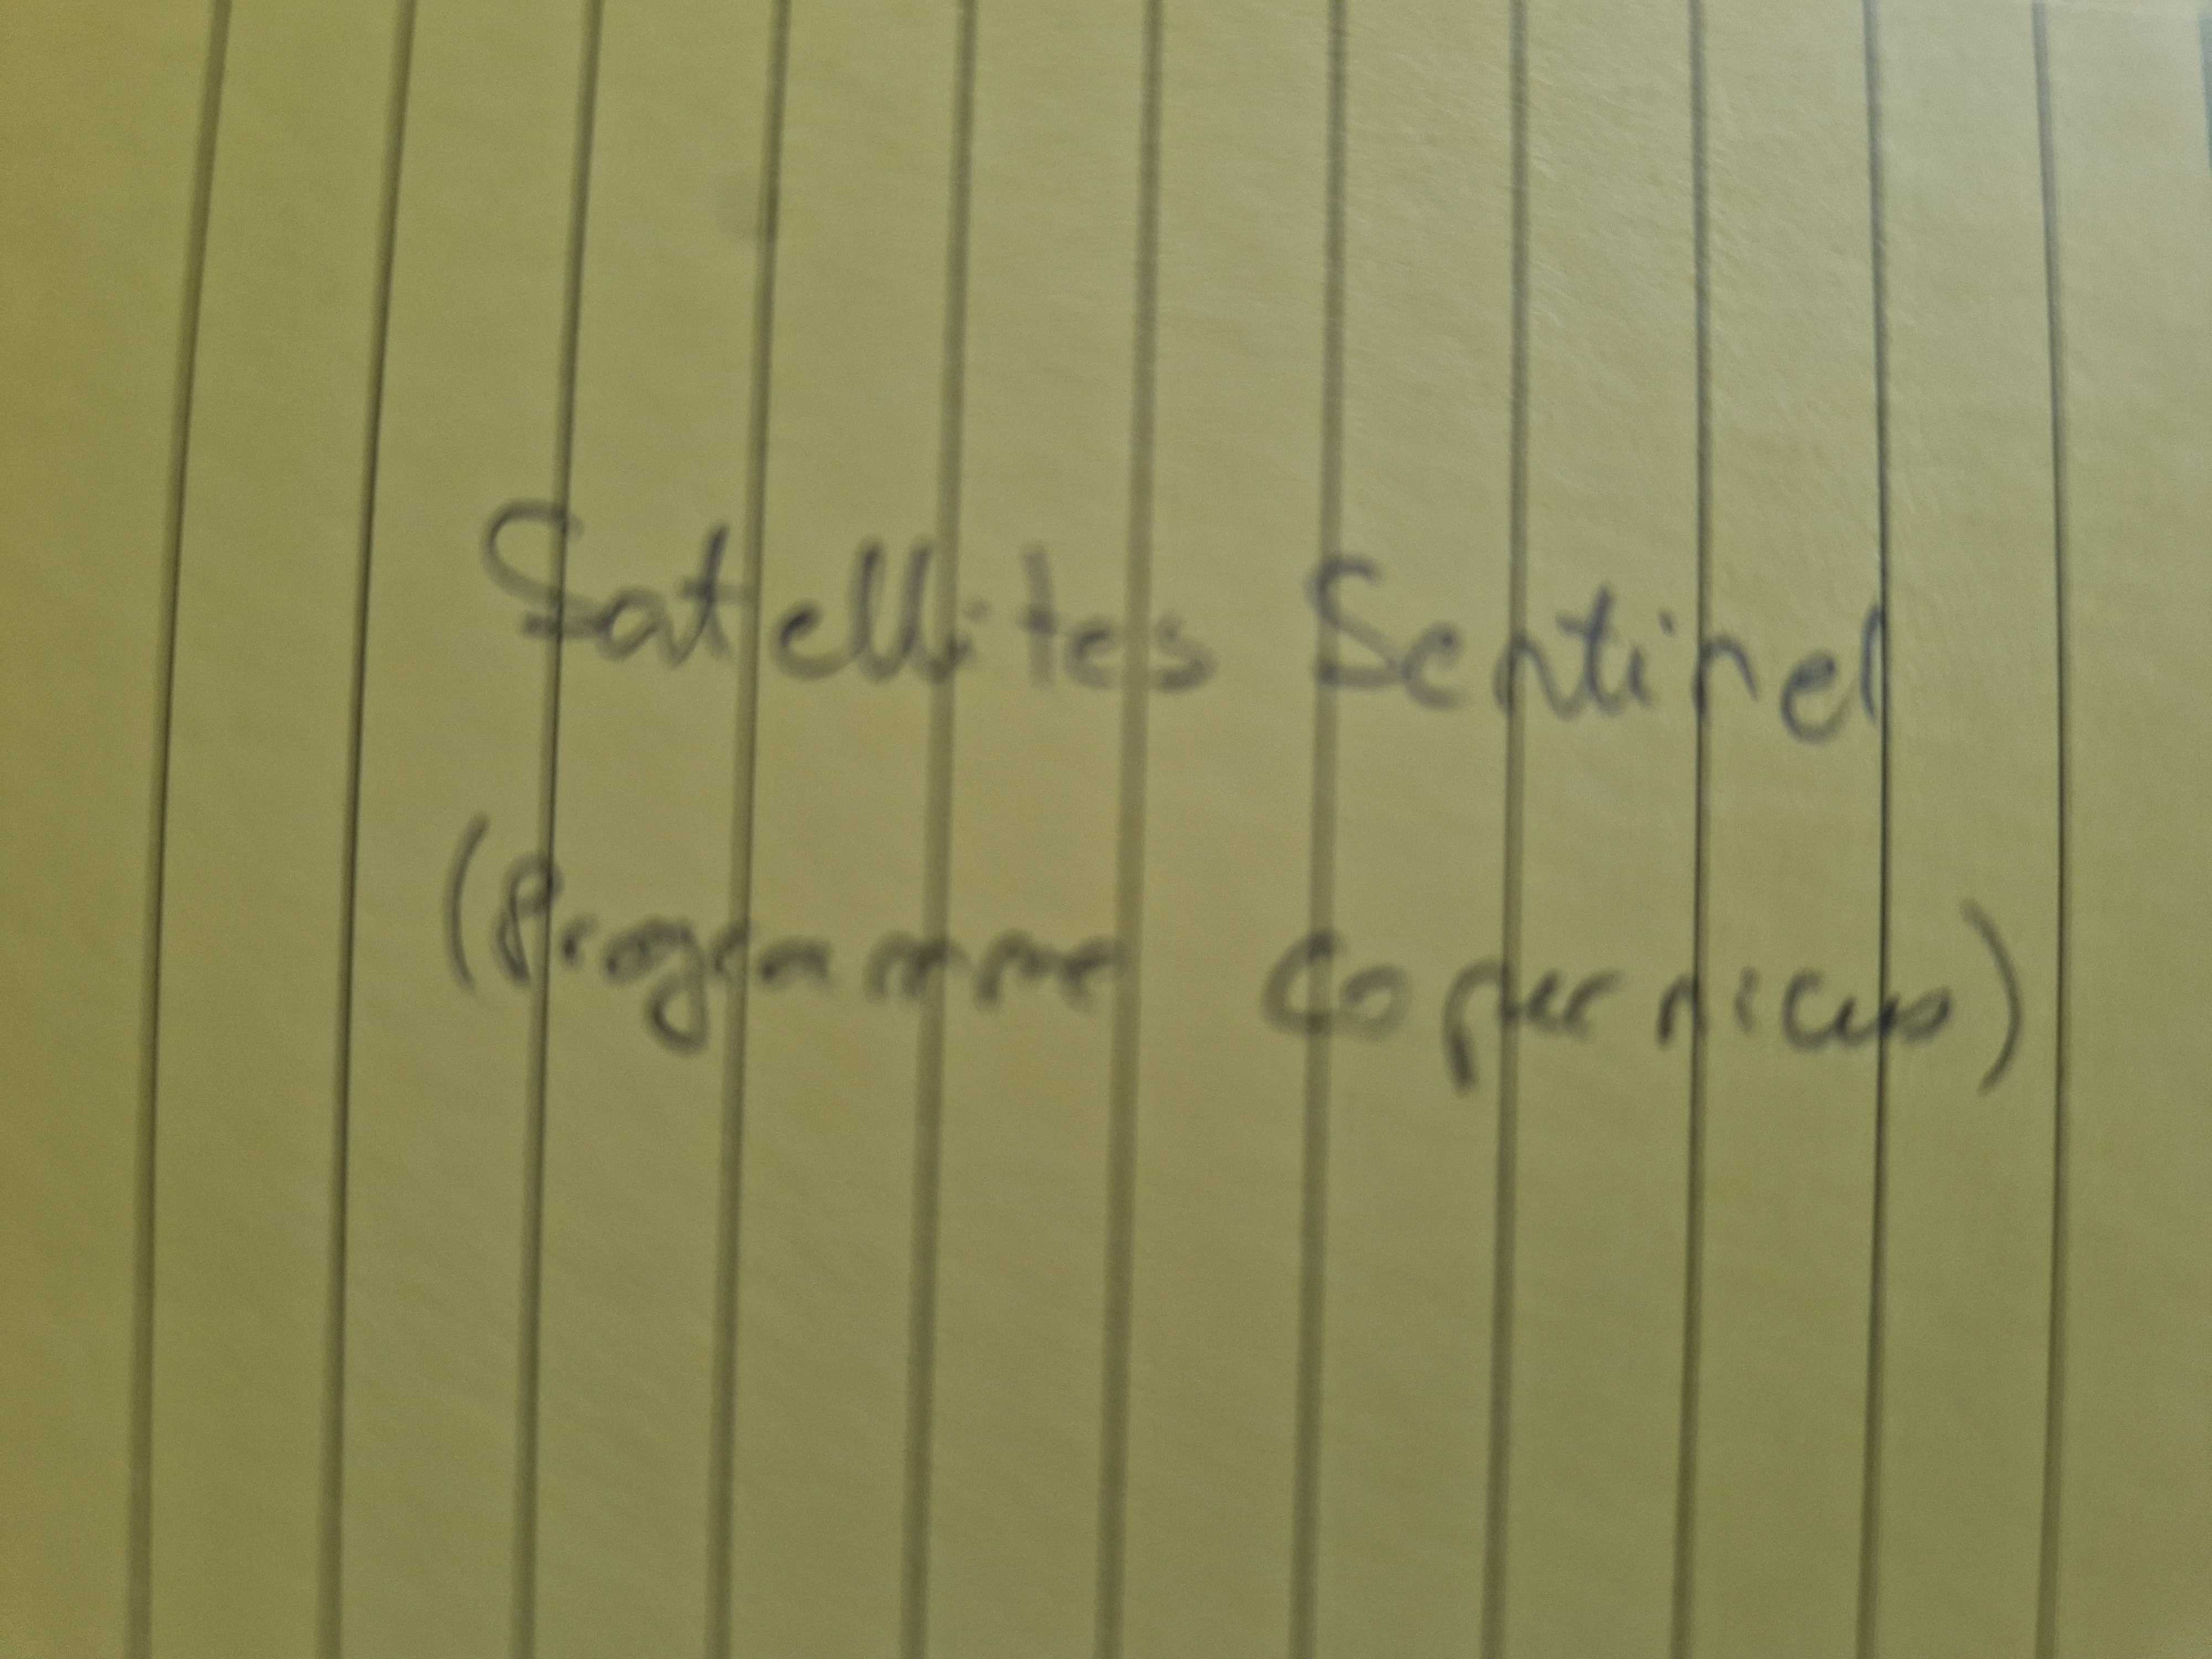 Satellites Sentinel
(Programme Copernicus)